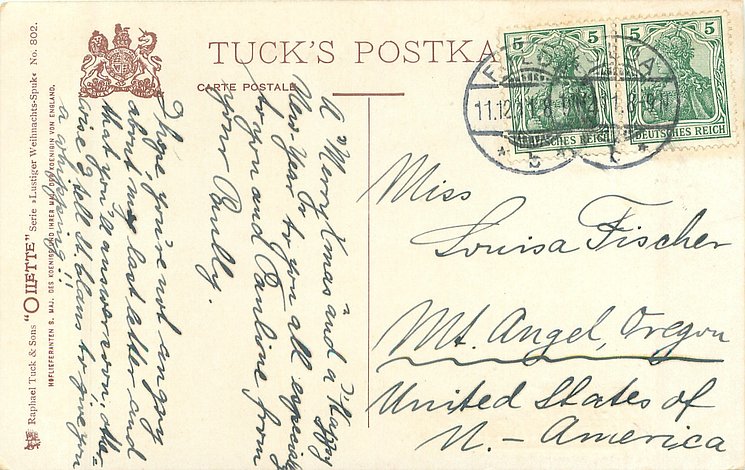 TUCK'S POSTKA
CARTE POSTALE
5 5
DEUTSCHES REICH
5 5
DEUTSCHES REICH
11.12.11.8-9N
Miss
Louisa Fischer
Mt. Angel, Oregon
United States of
N. - America
A Merry Xmas and a Happy
New-Year to you all especially
to you and Pauline from
your
I hope, you're not angry
about my last letter and
that you'll answer soon, other-
wise I tell St. Claus to give you
a whipping!!
Raphael Tuck & Sons "OILETTE" Serie »Lustiger Weihnachts-Spuk« No. 802.
HOFLIEFERANTEN S. MAJ. DES KOENIGS UND IHRER MAJ. DER KOENIGIN VON ENGLAND.